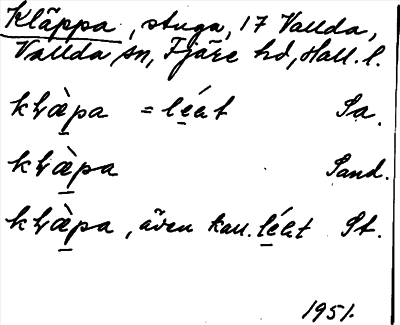 Kläppa, stuga, 17 Vallda,
Vallda sn, Fjäre hd, Hall. l.
kḷæ̀pa = léat Sa.
kḷæ̀pa Sand.
kḷæ̀pa, även kall. léat St.
1951.